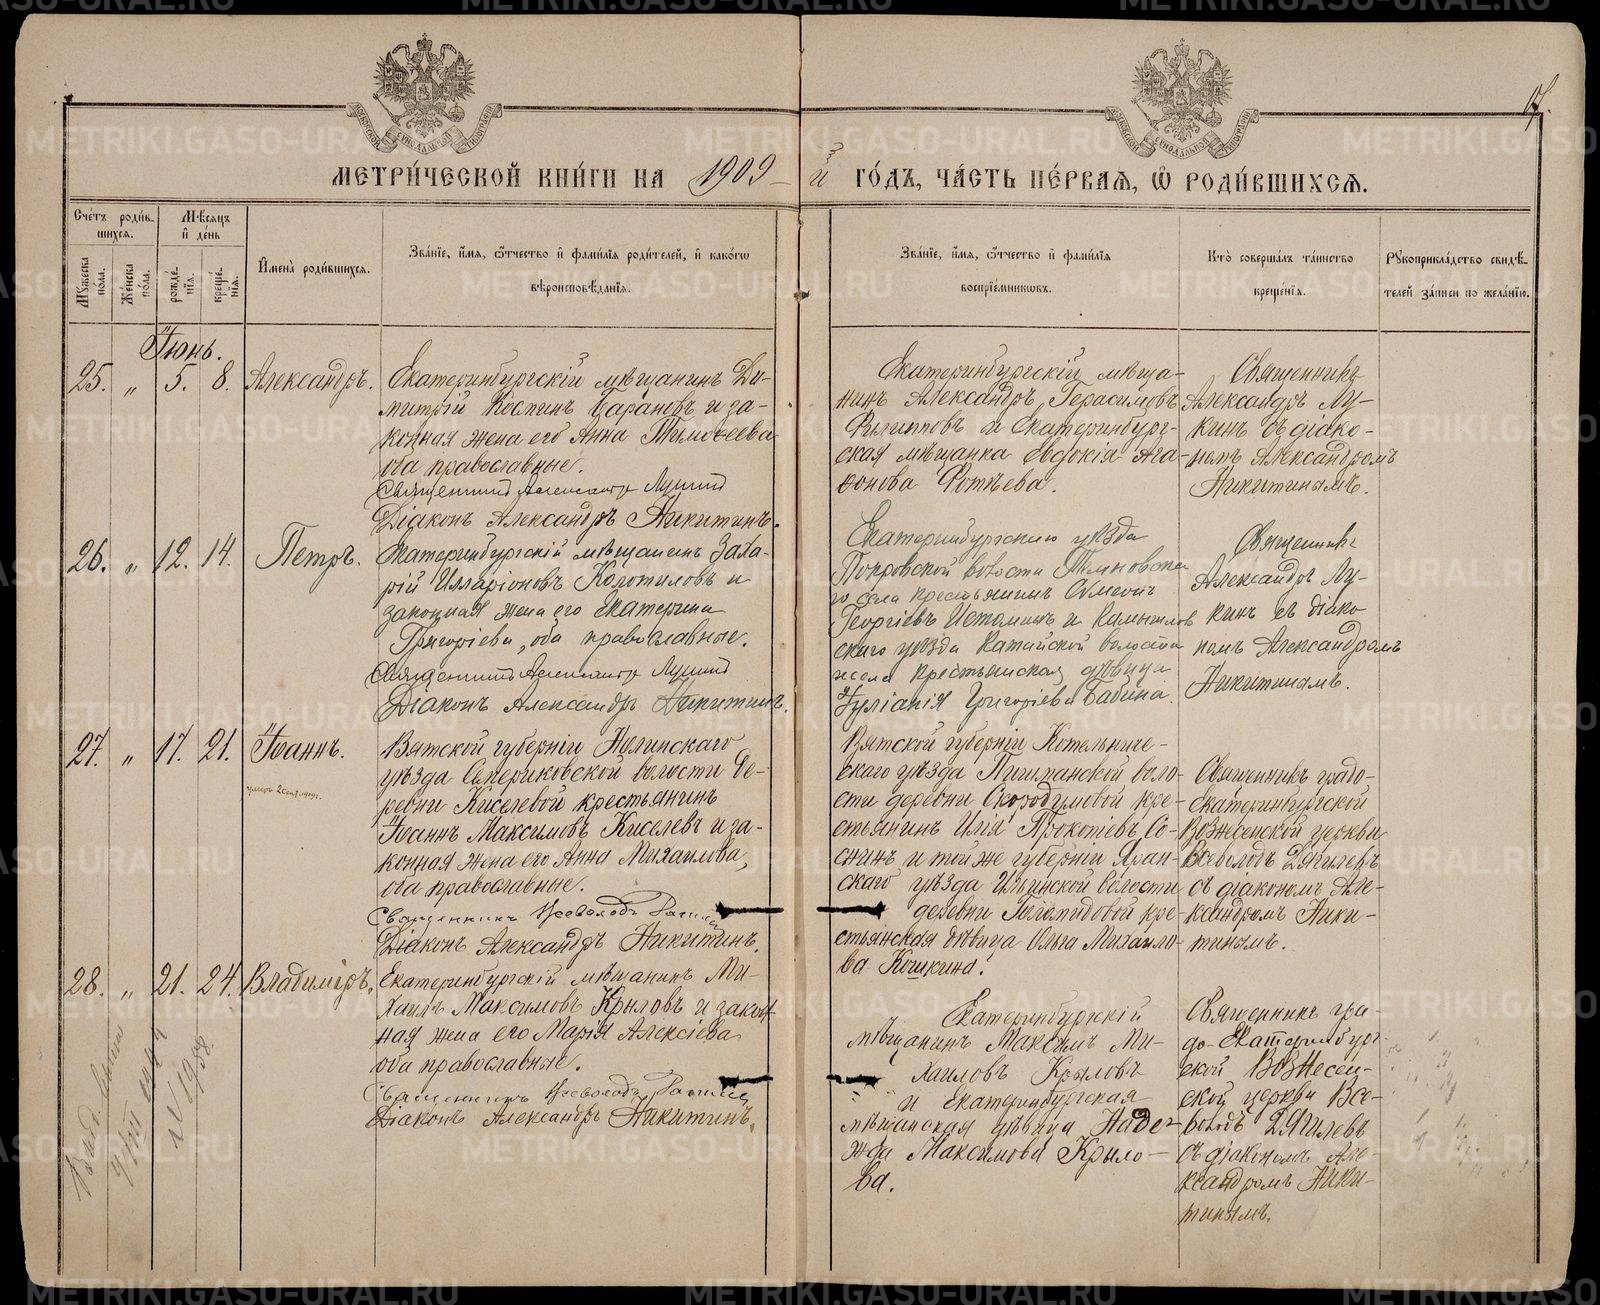 17.
МЕТРИ́ЧЕСКОЙ КНИ́ГИ НА 1909-й ГО́ДЪ, ЧА́СТЬ ПЕ́РВАЯ, Ѡ РОДИ́ВШИХСЯ.
Сче́тъ роди́в-
шихся.
Мѣ́сяцъ
и де́нь
Му́жеска
пола.
Же́нска
по́ла.
рожде́-
нїя.
креще́-
нїя.
Имена̀ роди́вшихся.
Зва́нїе, и́мя, ѻ́тчество и фами́лїя роди́телей, и како́гѡ
вѣроисповѣ́данїя.
Зва́нїе, и́мя, ѻ́тчество и фами́лїя
воспрїе́мниковъ.
Кто̀ соверша́лъ та́инство
креще́нїя.
Рукоприкла́дство свидѣ́-
телей за́писи по жела́нїю.
Іюнь.
25. „ 5. 8. Александръ.
Екатеринбургскій мѣщанинъ Ди-
митрій Костинъ Барановъ и за-
конная жена его Анна Тимоѳеева
оба православные.
Священникъ Александръ Лукинъ
Діаконъ Александръ Никитинъ.
Екатеринбургскій мѣща-
нинъ Александръ Герасимовъ
Филипповъ и Екатеринбург-
ская мѣщанка Евдокія Ага-
ѳонова Фотѣева.
Священникъ
Александръ Лу-
кинъ съ діако-
номъ Александромъ
Никитинымъ.
26. „ 12. 14. Петръ.
Екатеринбургскій мѣщанинъ Заха-
рій Илларіоновъ Колотиловъ и
законная жена его Екатерина
Григоріева, оба православные.
Священникъ Александръ Лукинъ
Діаконъ Александръ Никитинъ.
Екатеринбургскаго уѣзда
Покровской волости
го села крестьянинъ Симеонъ
Георгіевъ Истоминъ и Камышлов
скаго уѣзда Катайской волости
и села крестьянская дѣвица
Іуліанія Григоріева Бабина.
Священникъ
Александръ Лу-
кинъ съ діако
номъ Александромъ
Никитинымъ.
27. „ 17. 21. Іоаннъ.
умеръ 2 сент. 1909 г.
Вятской губерніи Нолинскаго
уѣзда волости де-
ревни Киселевой крестьянинъ
Іоаннъ Максимовъ Киселевъ и за-
конная жена его Анна Михаилова,
оба православные.
Священникъ Всеволодъ
Діаконъ Александръ Никитинъ.
Вятской губерніи Котельниче-
скаго уѣзда воло-
сти деревни Скородумовой кре-
стьянинъ Илія Прокопіевъ Со-
снинъ и той же губерніи Яран-
скаго уѣзда Ильинской волости
деревни кре-
стьянская дѣвица Ольга Михаило-
ва Кошкина.
Священникъ градо-
Екатеринбургской
Вознесенской церкви
Всеволодъ Дягилевъ
съ діакономъ Але-
ксандромъ Ники-
тинымъ.
28. „ 21. 24. Владиміръ.
Екатеринбургскій мѣщанинъ Ми-
хаилъ Максимовъ Крыловъ и закон-
ная жена его Марія Алексіева
оба православные.
Священникъ Всеволодъ
Діаконъ Александръ Никитинъ.
Екатеринбургскій
мѣщанинъ Максимъ Ми-
хаиловъ Крыловъ
и Екатеринбургская
мѣщанская дѣвица Наде-
жда Максимова Крыло-
ва.
Священникъ гра-
до-Екатеринбург-
ской Вознесен-
ской церкви Все-
володъ Дягилевъ
съ діакономъ Але-
ксандромъ Ники-
тинымъ.
METRIKI.GASO-URAL.RU